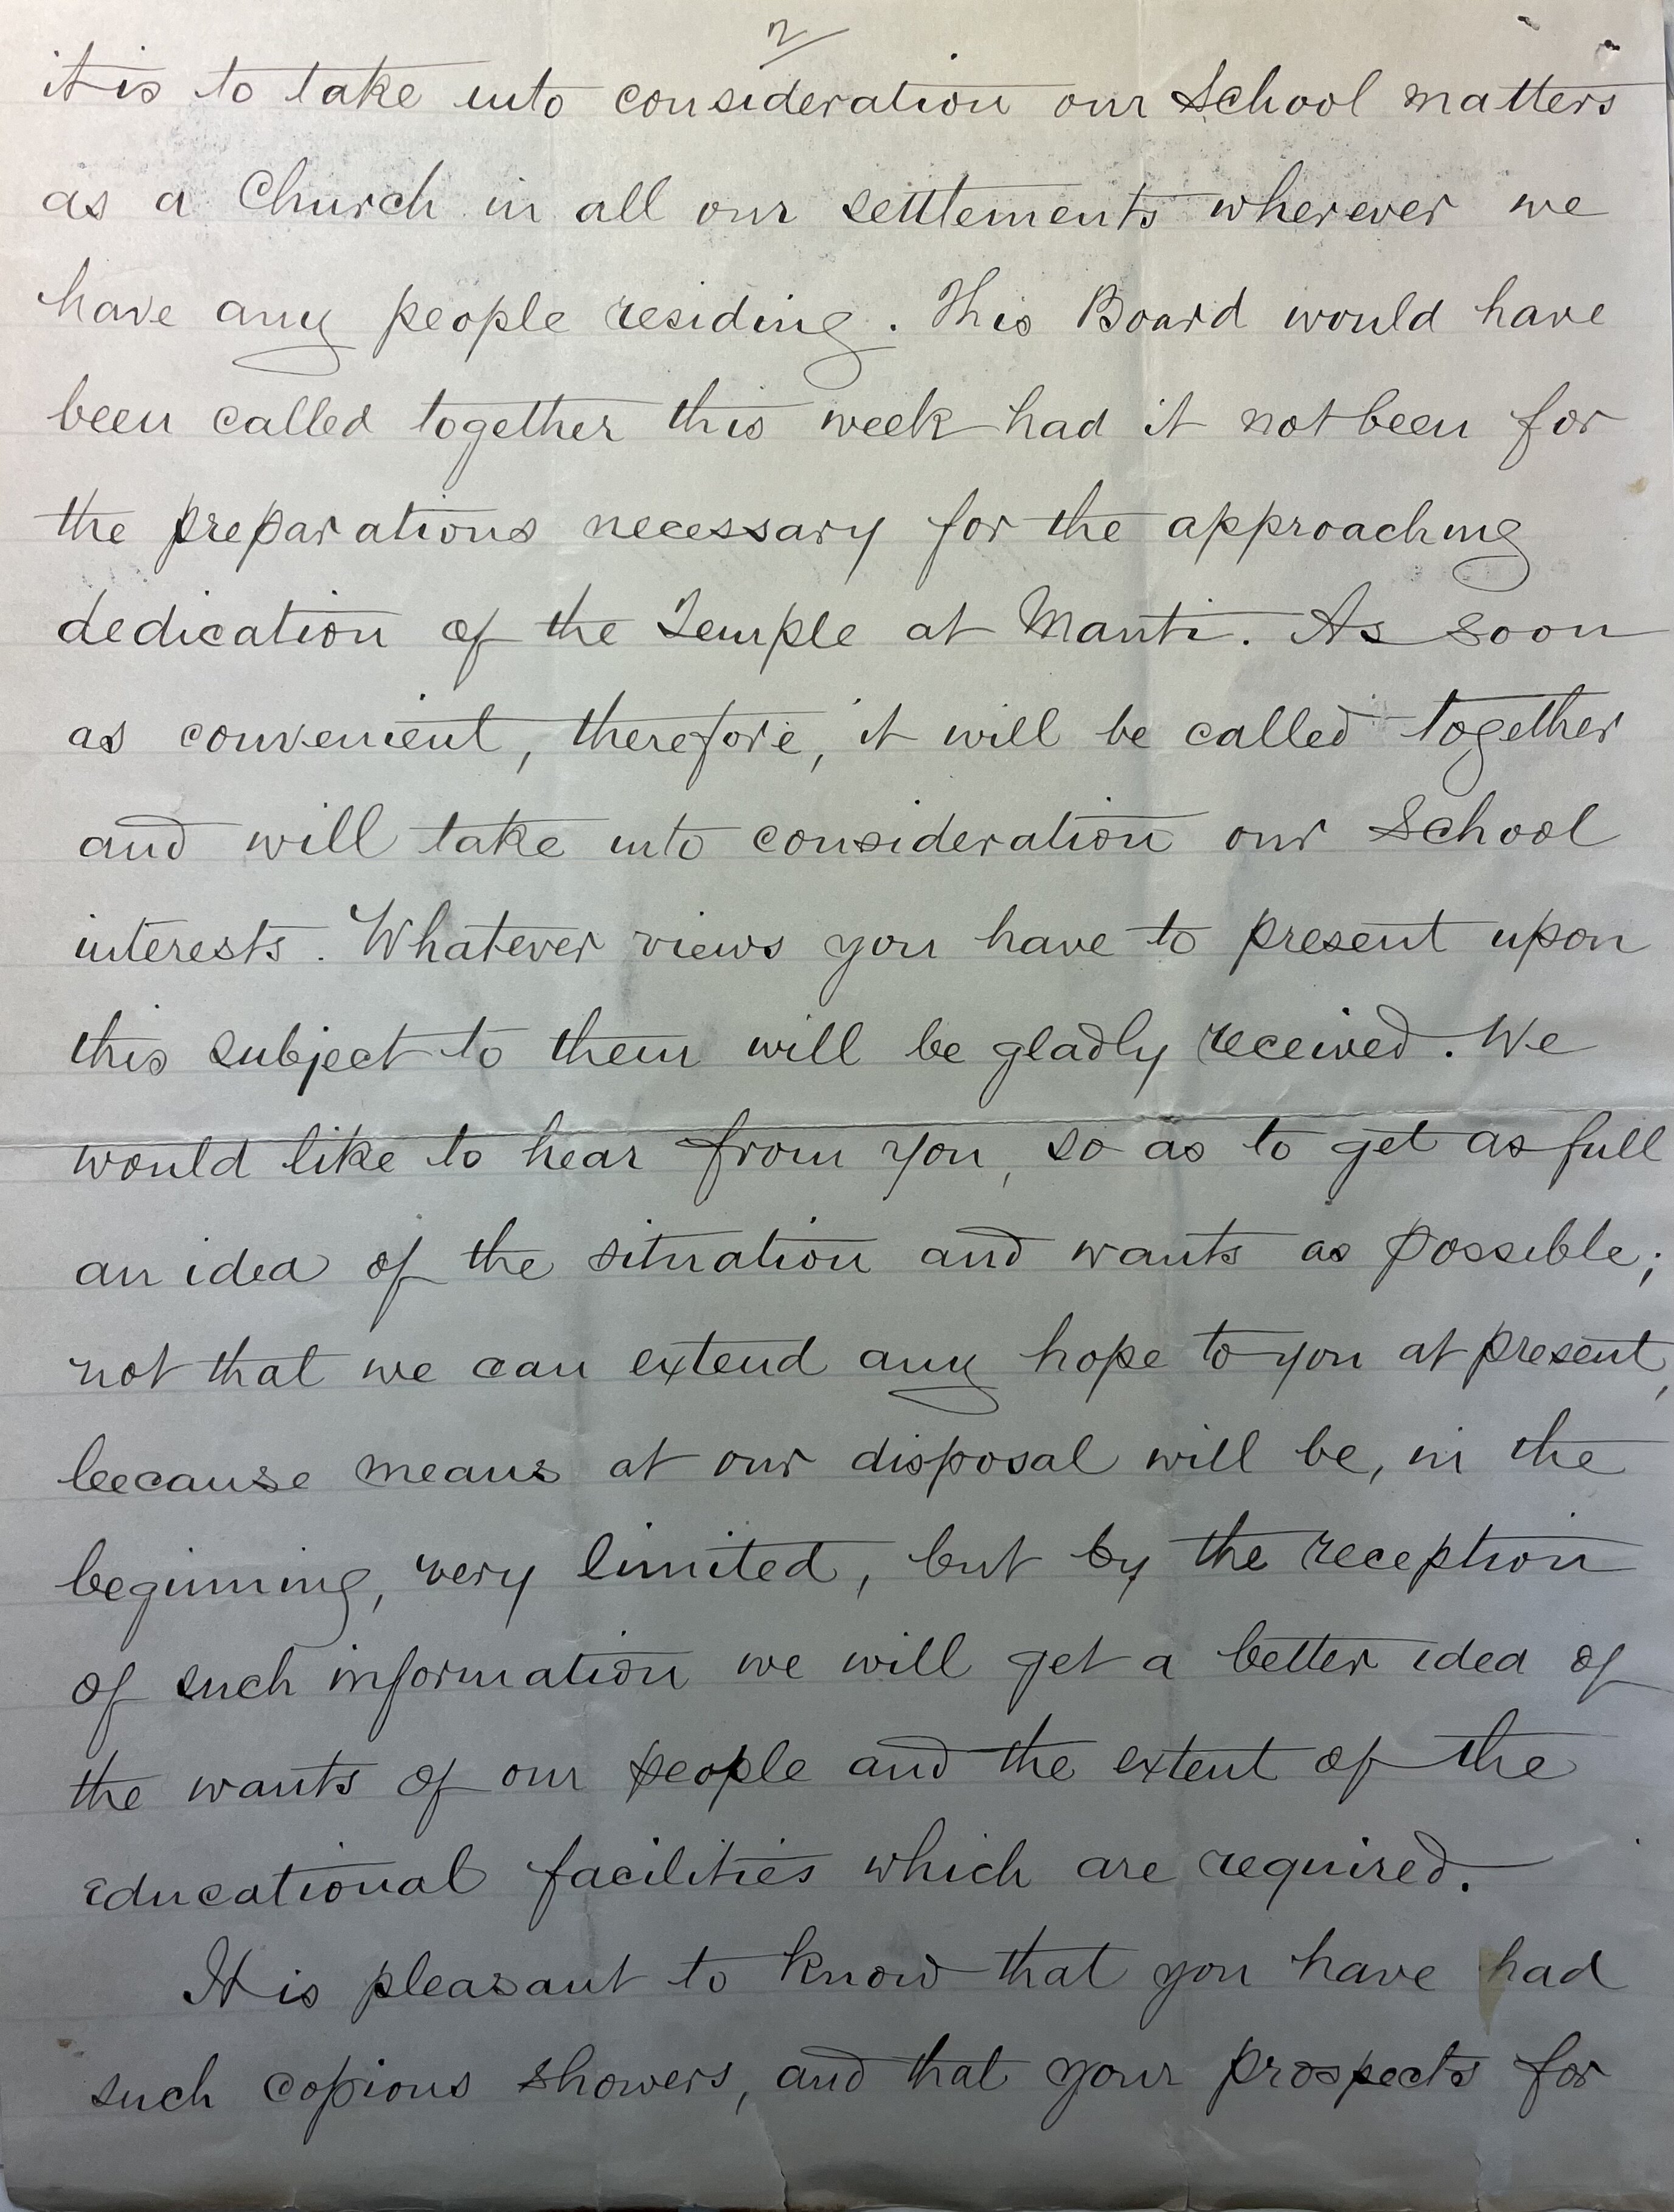 2
it is to take into consideration our School matters
as a Church in all our settlements wherever we
have any people residing. This Board would have
been called together this week had it not been for
the preparations necessary for the approaching
dedication of the Temple at Manti. As soon
as convenient, therefore, it will be called together
and will take into consideration our School
interests. Whatever views you have to present upon
this subject to them will be gladly received. We
would like to hear from you, so as to get as full
an idea of the situation and wants as possible;
not that we can extend any hope to you at present,
because means at our disposal will be, in the
beginning, very limited, but by the reception
of such information we will get a better idea of
the wants of our people and the extent of the
educational facilities which are required.
It is pleasant to know that you have had
such copious showers, and that your prospects for